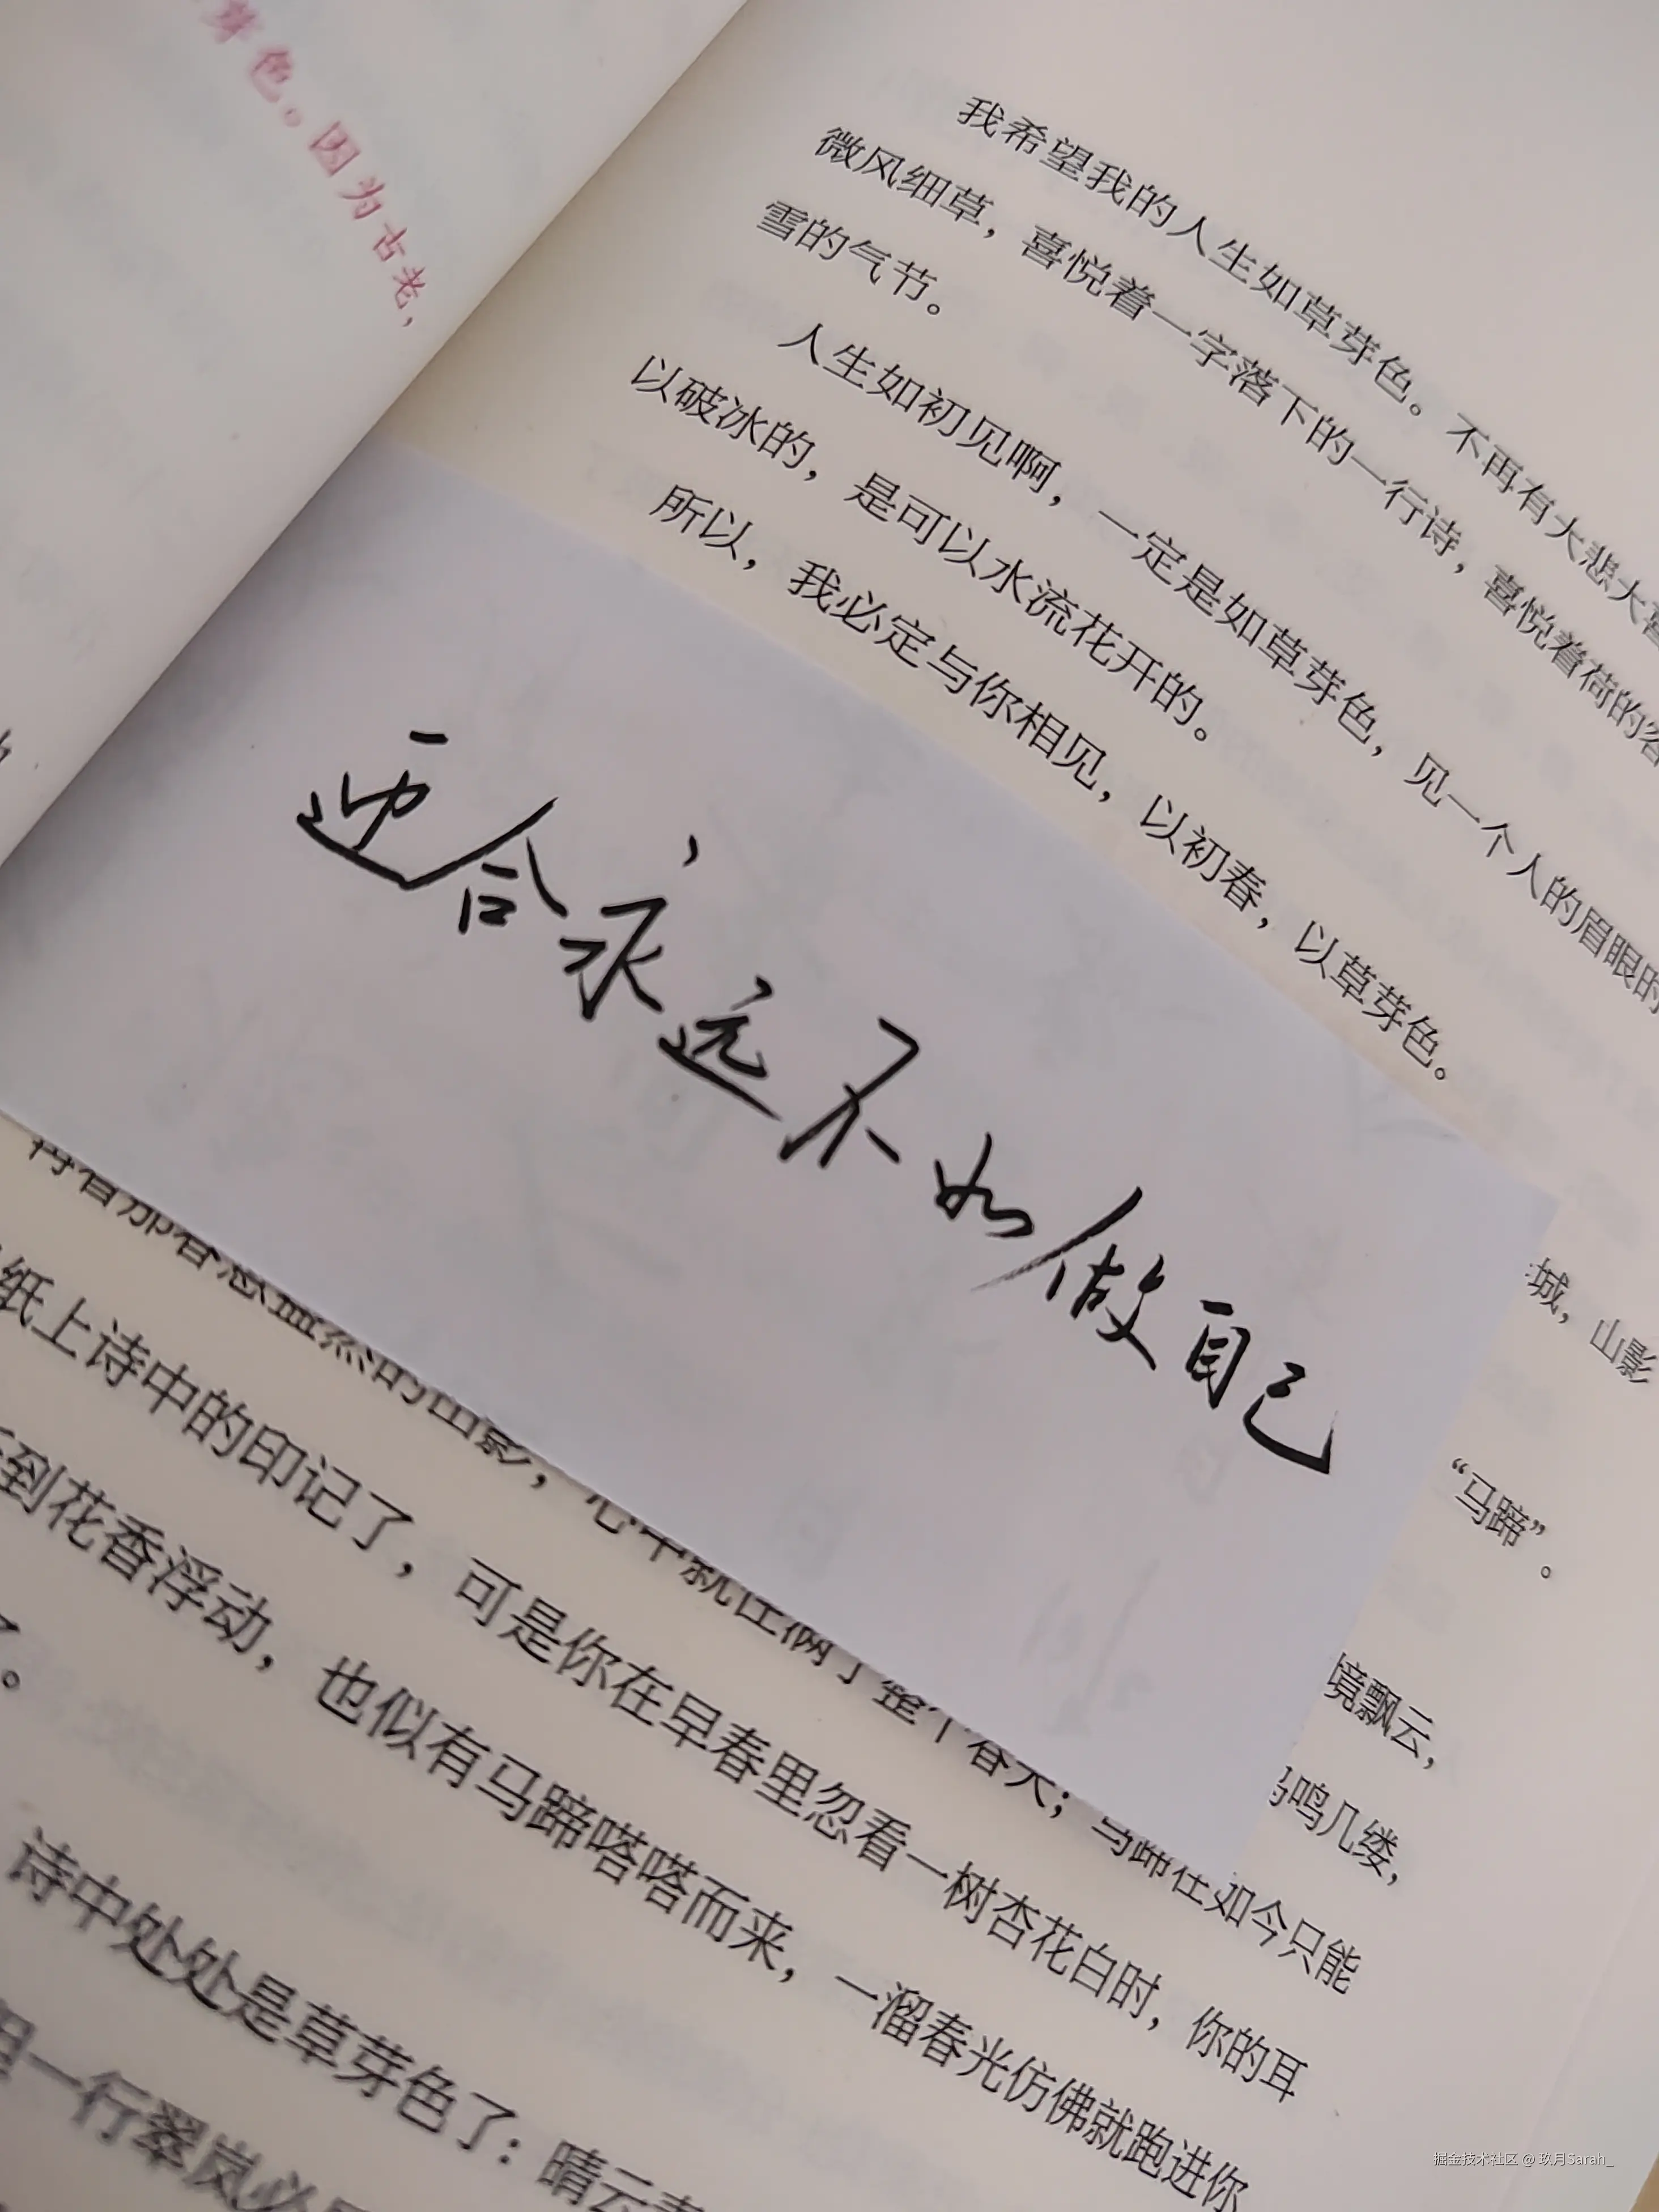 芽色。因为古老，
我希望我的人生如草芽色。不再有大悲大喜
微风细草，喜悦着一字落下的一行诗，喜悦着荷的客
雪的气节。
人生如初见啊，一定是如草芽色，见一个人的眉眼时
以破冰的，是可以水流花开的。
所以，我必定与你相见，以初春，以草芽色。
迎合永远不如做自己
城，山影
“马蹄”。
境飘云，
鸟鸣几缕，
再看那春意盎然的山影，心中就住满了整个春天；马蹄在如今只能
纸上诗中的印记了，可是你在早春里忽看一树杏花白时，你的耳
到花香浮动，也似有马蹄嗒嗒而来，一溜春光仿佛就跑进你
了。
诗中处处是草芽色了：晴云
一行翠岚必
掘金技术社区 @ 玖月Sarah_